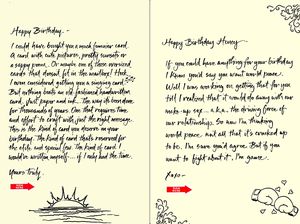 Happy Birthday -
I could have bought you a much funnier card.
A card with cats pictures, pretty sunsets or
a sappy poem. Or maybe one of those oversized
cards that doesn't fit in the mailbox! Heck,
I even considered getting you a singing card.
But nothing beats an old fashioned handwritten
card, just paper and ink. The way it's been done
for thousands of years. One that requires time
and effort to craft with just the right message.
This is the kind of card you deserve on your
birthday. The kind of card that's reserved for
the elite and special few. The kind of card I
would've written myself... if I only had the time.
Yours Truly,
Happy Birthday Honey -
If you could have anything for your birthday
I know you'd say you want world peace.
Well I was working on getting that for you
till I realized that it would do away with our
make-up sex.. a.k.a. the driving force of
our relationship. So now I'm thinking
world peace isn't all that it's cracked up
to be. I'm sure you'd agree. But if you
want to fight about it, I'm game.
Xoxo -